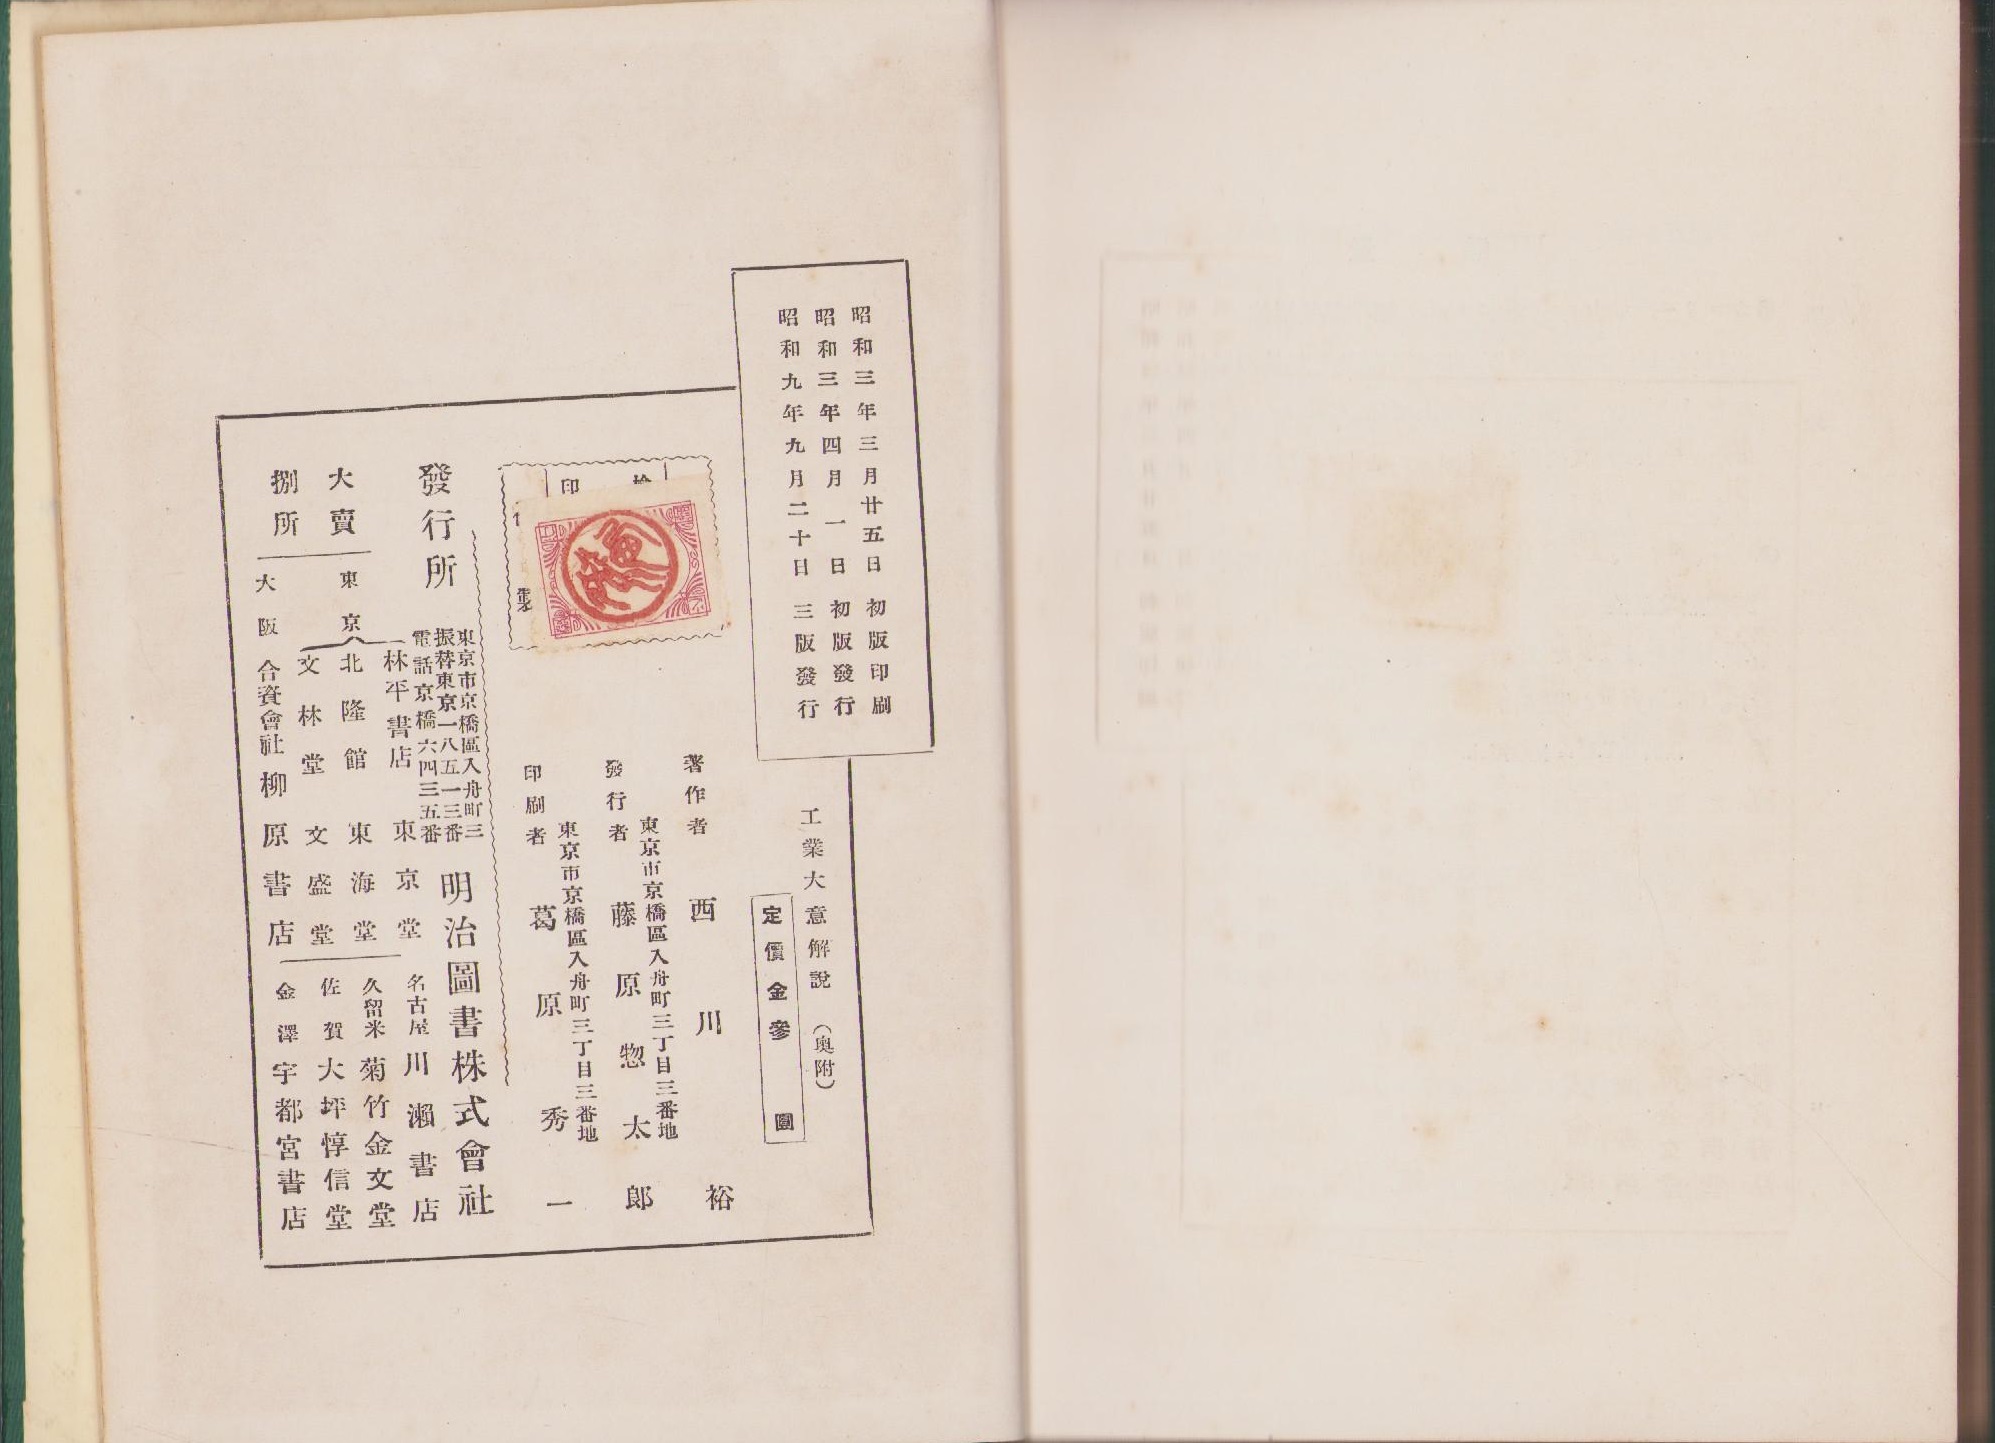 昭和三年三月廿五日 初版印刷
昭和三年四月一日 初版發行
昭和九年九月二十日 三版發行
工業大意解說 (奥附)
定價金參圓
著作者 西川裕
東京市京橋區入舟町三丁目三番地
發行者 藤原惣太郎
東京市京橋區入舟町三丁目三番地
印刷者 葛原秀一
印
發行所
東京市京橋區入舟町三
振替東京一八五一三番
電話京橋六四三五番
明治圖書株式會社
大賣捌所
東京
林平書店 東京堂
北隆館 東海堂
文林堂 文盛堂
大阪 合資會社 柳原書店
名古屋 川瀨書店
久留米 菊竹金文堂
佐賀 大坪惇信堂
金澤 宇都宮書店